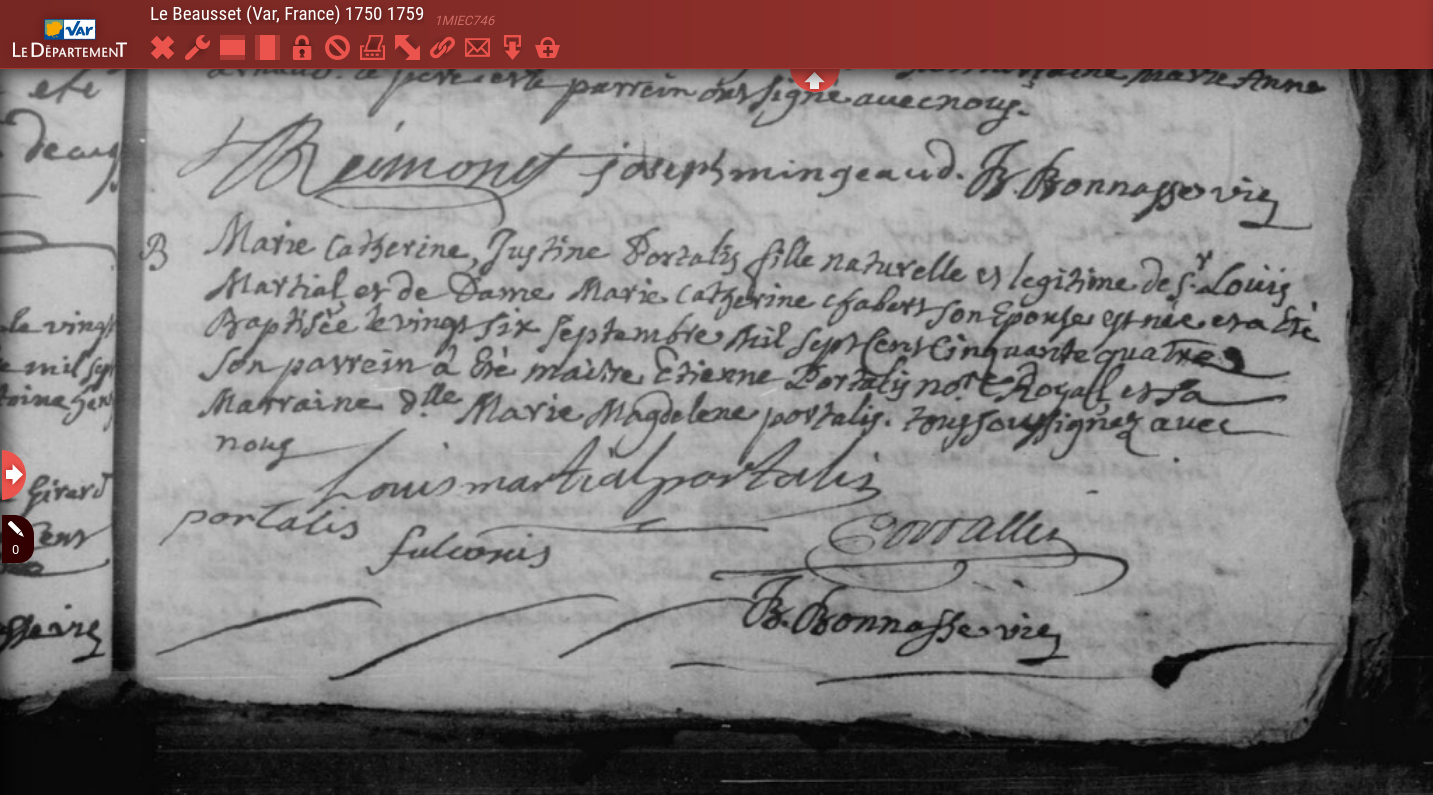 Le Beausset (Var, France) 1750 1759
1MIEC746
Var
LE DÉPARTEMENT
parrein signé avec nous.
Reimond joseph mingeaud. B. Bonnasse vic
B
Marie Catherine, Justine Portalis fille naturelle et legitime de Sr. Louis
Martial et de Dame Marie Catherine chabert son Epouse est née et a Eté
Baptisée le vingt six septembre Mil sept Cent Cinquante quatre
Son parrein à Eté maitre Etienne Portalis nore Royall et sa
Marraine dlle Marie Magdelene portalis. tous soussignez avec
nous
Louis martial portalis
portalis
fulconis
Portallis
B. Bonnasse vic
0